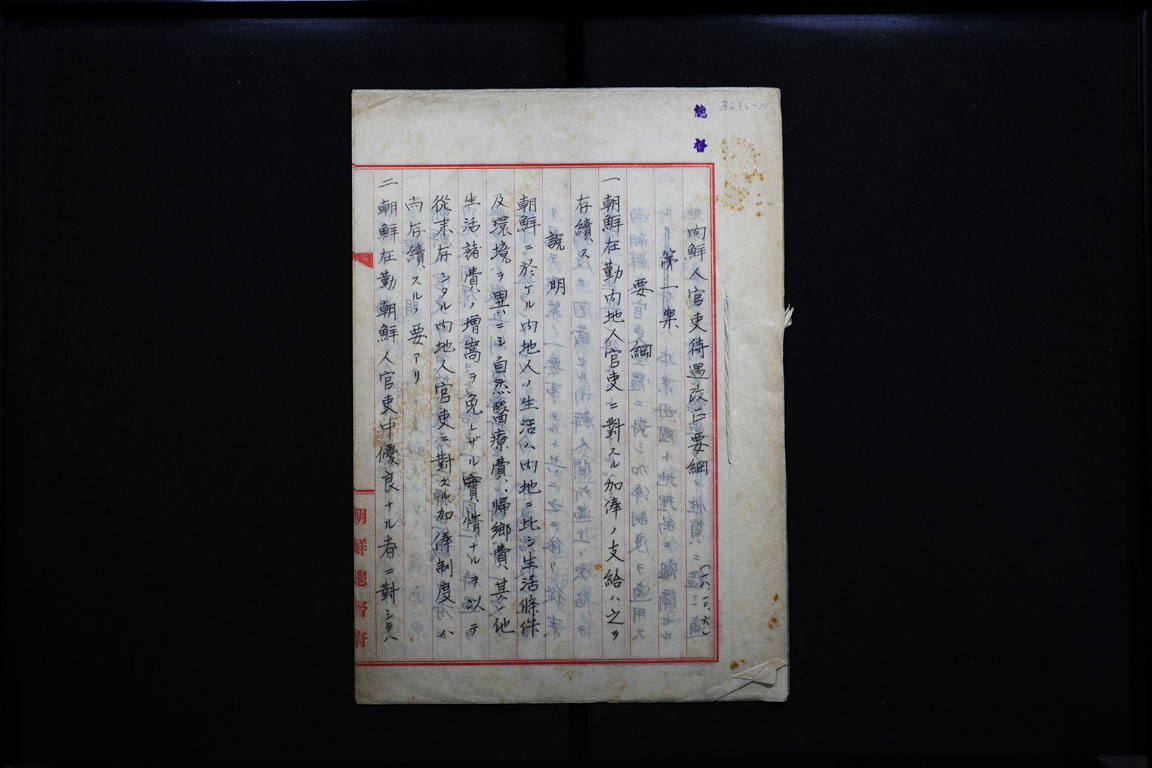 總督
内鮮人官吏待遇改正要綱
(一六、一〇、六)
第一案
要綱
一朝鮮在勤内地人官吏ニ對スル加俸ノ支給ハ之ヲ
存續ス
説明
朝鮮ニ於ケル内地人ノ生活ハ内地ニ比シ生活條件
及環境ヲ異ニシ自然醫療費、帰郷費、其ノ他
生活諸費ノ増嵩ヲ免レザル實情ナルヲ以テ
從来存シタル内地人官吏ニ對スル加俸制度ハ
尚存續スルノ要アリ
二朝鮮在勤朝鮮人官吏中優良ナル者ニ對シテハ
朝鮮總督府